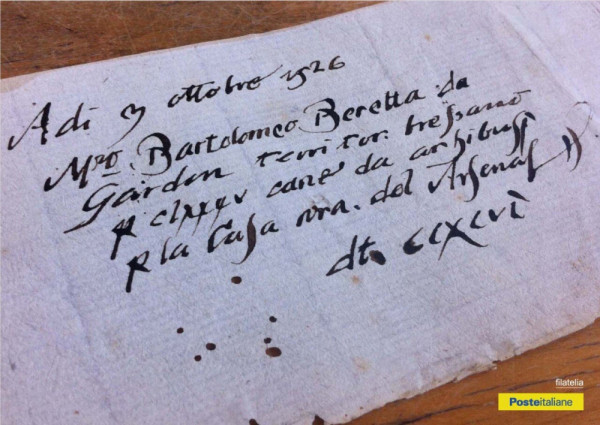 Adi 3 ottobre 1526
Mro. Bartolomeo Beretta da
Gardon territor. bressano
p clxxxv cane da archibussi
p la Casa nra. del Arsenal
dt. cclxxxxvi
filatelia
Posteitaliane